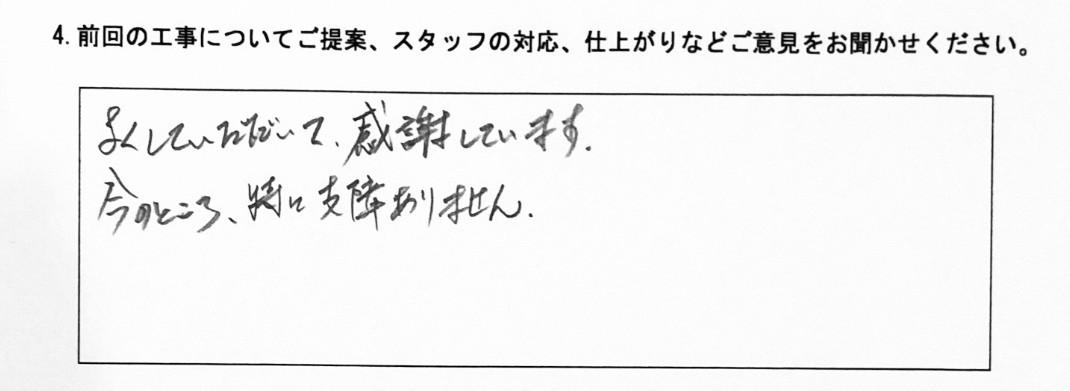 4. 前回の工事についてご提案、スタッフの対応、仕上がりなどご意見をお聞かせください。
よくしていただいて、感謝しています。
今のところ、特に支障ありません。